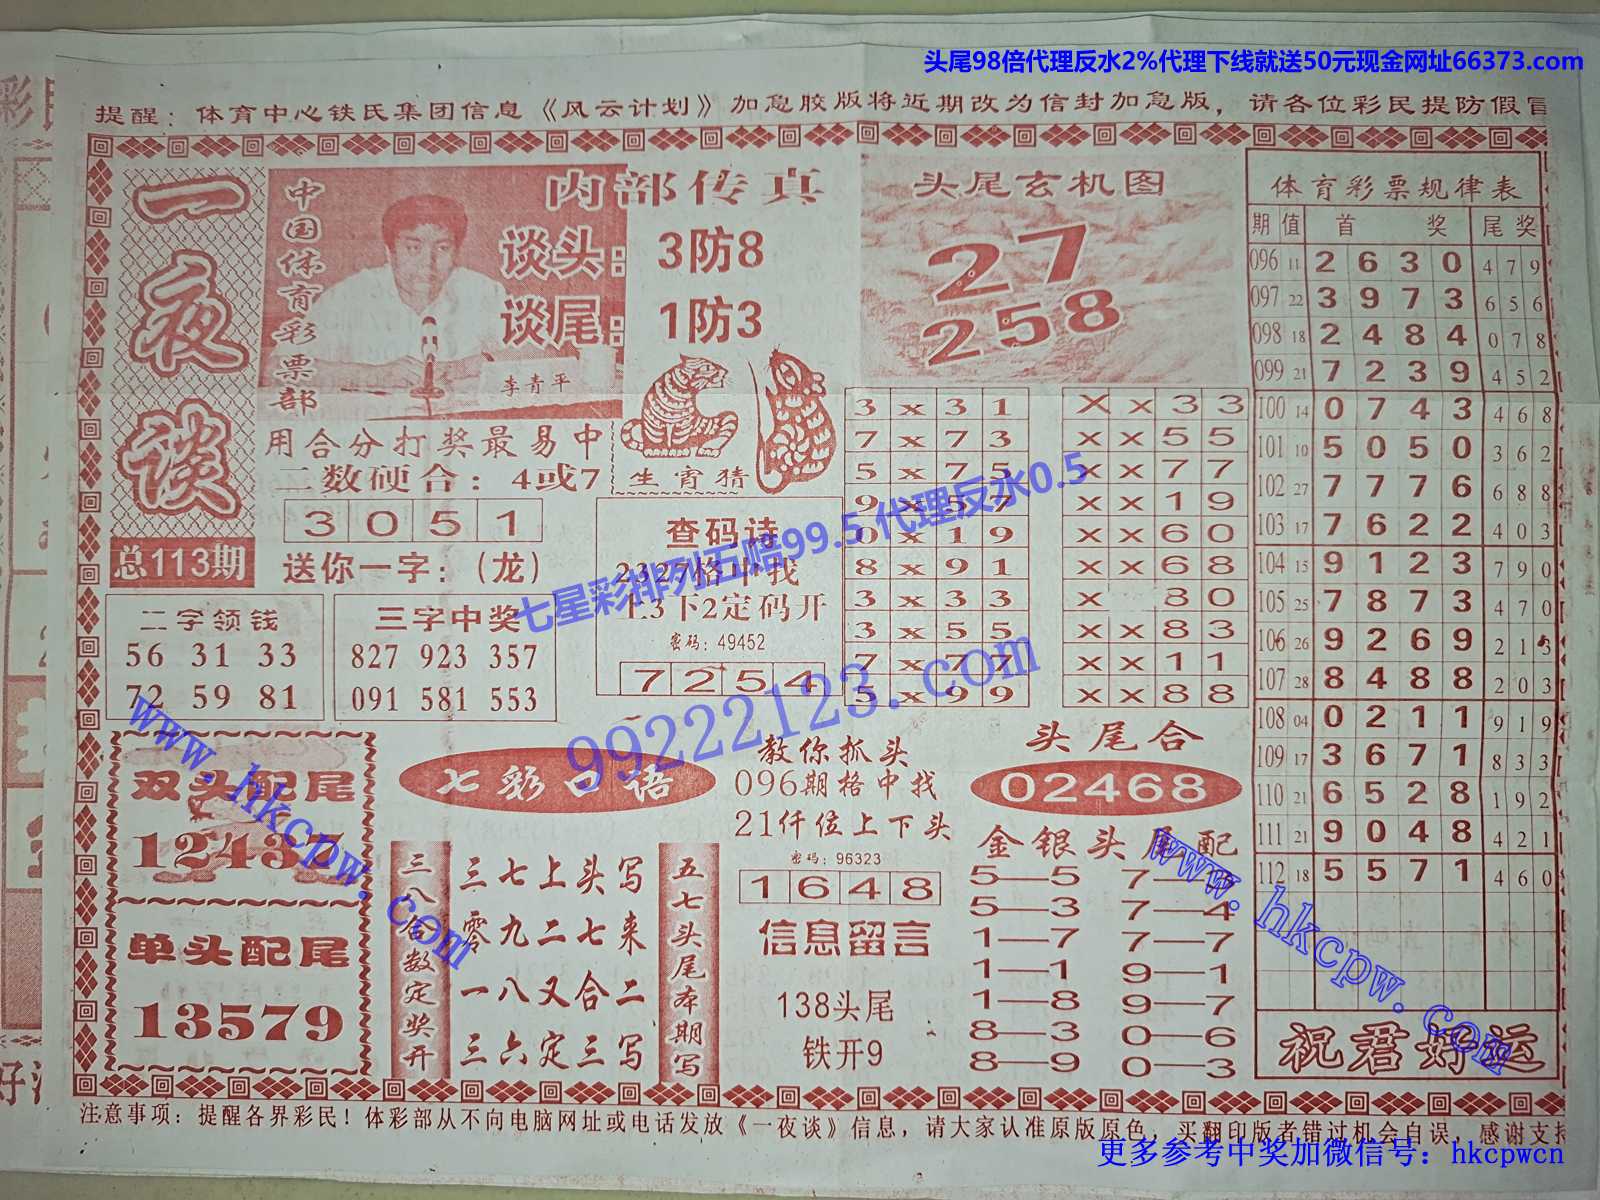 头尾98倍代理反水2%代理下线就送50元现金网址66373.com
提醒：体育中心铁氏集团信息《风云计划》加急胶版将近期改为信封加急版，请各位彩民提防假冒
一夜谈
总113期
中国体育彩票部
内部传真
谈头：3防8
谈尾：1防3
李青平
用合分打奖最易中
二数硬合：4或7
3051
送你一字：（龙）
生宵猜
头尾玄机图
27
258
查码诗
2327格中找
上3下2定码开
密码：49452
7254
二字领钱
56 31 33
72 59 81
三字中奖
827 923 357
091 581 553
3 x 3 1
7 x 7 3
5 x 7 5
9 x 5 7
0 x 1 9
8 x 9 1
3 x 3 3
3 x 5 5
7 x 7 7
5 x 9 9
X x 3 3
x x 5 5
x x 7 7
x x 1 9
x x 6 0
x x 6 8
8 0
x x 8 3
x x 1 1
x x 8 8
双头配尾
12437
单头配尾
13579
七彩口语
三八合数定奖开
三七上头写
零九二七来
一八又合二
三六定三写
五七头尾本期写
教你抓头
096期格中找
21仟位上下头
密码：96323
1648
信息留言
138头尾
铁开9
头尾合
02468
金银头尾配
5—5
5—3 7—4
1—7 7—7
1—1 9—1
1—8 9—7
8—3 0—6
8—9 0—3
体育彩票规律表
期 值 首 奖 尾 奖
096 11 2 6 3 0 4 7 9
097 22 3 9 7 3 6 5 6
098 18 2 4 8 4 0 7 8
099 21 7 2 3 9 4 5 2
100 14 0 7 4 3 4 6 8
101 10 5 0 5 0 3 6 2
102 27 7 7 7 6 6 8 8
103 17 7 6 2 2 4 0 3
104 15 9 1 2 3 7 9 0
105 25 7 8 7 3 4 7 0
106 26 9 2 6 9 2 1 3
107 28 8 4 8 8 2 0 3
108 04 0 2 1 1 9 1 9
109 17 3 6 7 1 8 3 3
110 21 6 5 2 8 1 9 2
111 21 9 0 4 8 4 2 1
112 18 5 5 7 1 4 6 0
祝君好运
七星彩排列五赔99.5 代理反水0.5
99222123.com
www.hkcpw.com
www.hkcpw.com
注意事项：提醒各界彩民！体彩部从不向电脑网址或电话发放《一夜谈》信息，请大家认准原版原色，买翻印版者错过机会自误，感谢支持
更多参考中奖加微信号：hkcpwcn